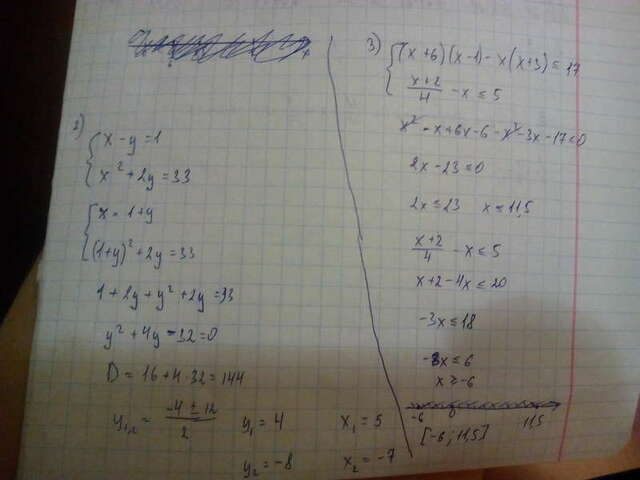 2)
{ x - y = 1
x² + 2y = 33
{ x = 1+y
(1+y)² + 2y = 33
1 + 2y + y² + 2y = 33
y² + 4y - 32 = 0
D = 16 + 4·32 = 144
y₁,₂ = (-4 ± 12)/2   y₁ = 4   x₁ = 5
y₂ = -8   x₂ = -7
3) { (x+6)(x-1) - x(x+3) ≤ 17
(x+2)/4 - x ≤ 5
x² - x + 6x - 6 - x² - 3x - 17 ≤ 0
2x - 23 ≤ 0
2x ≤ 23   x ≤ 11,5
(x+2)/4 - x ≤ 5
x + 2 - 4x ≤ 20
-3x ≤ 18
x ≤ 6
x ≥ -6
-6   11,5
[-6; 11,5]